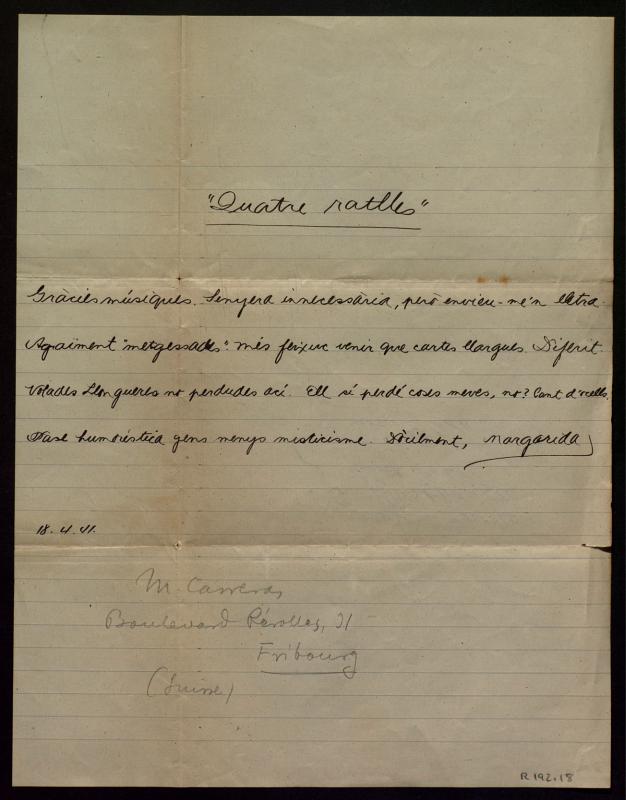 "Quatre ratlles"
Gràcies músiques. Senyera innecessària, però envieu-me'n lletra.
Agraïment "metgessades". Més feixuc venir que cartes llargues. Diferit.
Volades Llongueres no perdudes ací. Ell sí perdé coses meves, no? Cant d'ocells.
Fase humorística gens menys misticisme. Dòcilment, Margarida
18.4.41.
M. Carreras
Boulevard Pérolles, 31
Fribourg
(Suisse)
R 192.18